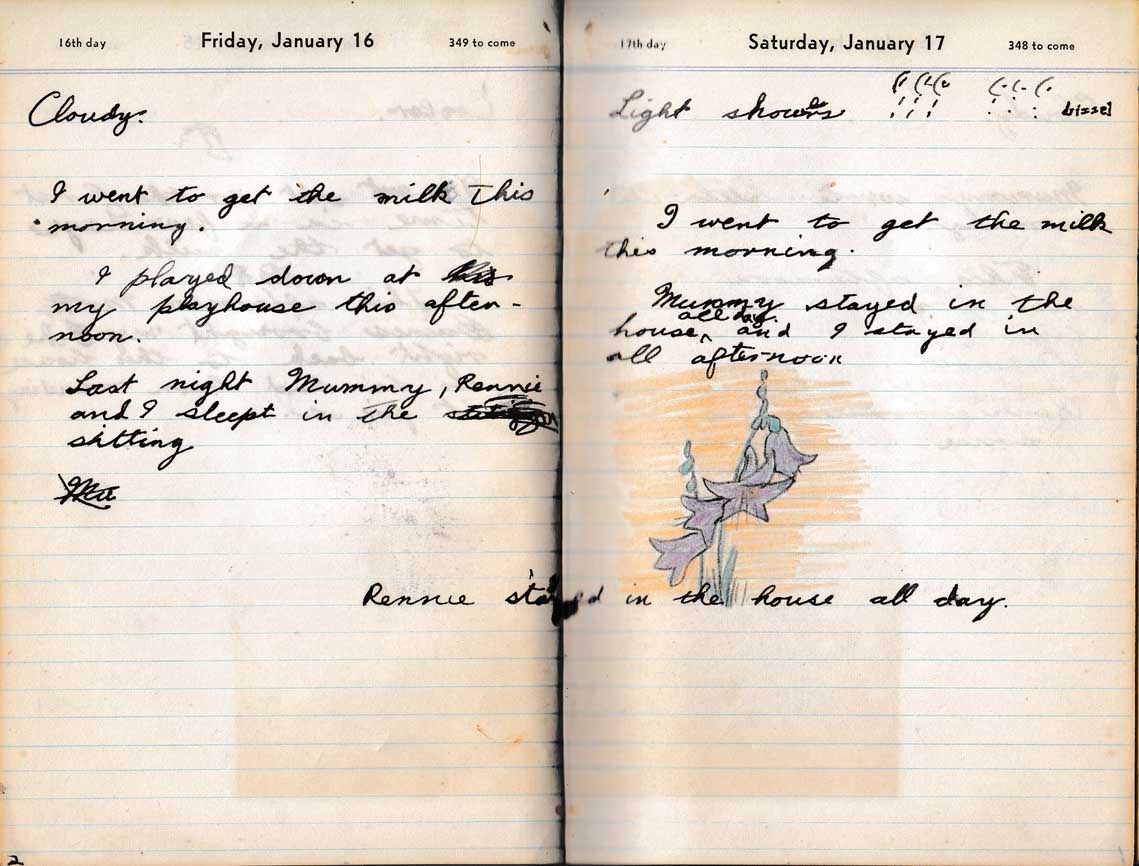 16th day Friday, January 16 349 to come
Cloudy.
I went to get the milk this
morning.
I played down at his
my playhouse this after-
noon.
Last night Mummy, Rennie
and I sleept in the
sitting
Ma
17th day Saturday, January 17 348 to come
Light showers
I went to get the milk
this morning.
Mummy stayed in the
all day.
house, and I stayed in
all afternoon
Rennie stayed in the house all day.
2